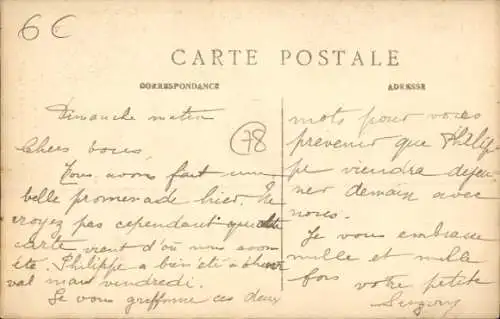 6 €
CARTE POSTALE
CORRESPONDANCE
ADRESSE
Dimanche matin
78
Chers vous,
Nous avons fait une
belle promenade hier. Ne
croyez pas cependant que cette
carte vient d'où nous avons
été. Philippe a bien été à che
val mais vendredi.
Je vous griffonne ces deux
mots pour vous
prévenir que Philip
pe viendra déjeu
ner demain avec
nous.
Je vous embrasse
mille et mille
fois votre petite
Suzon